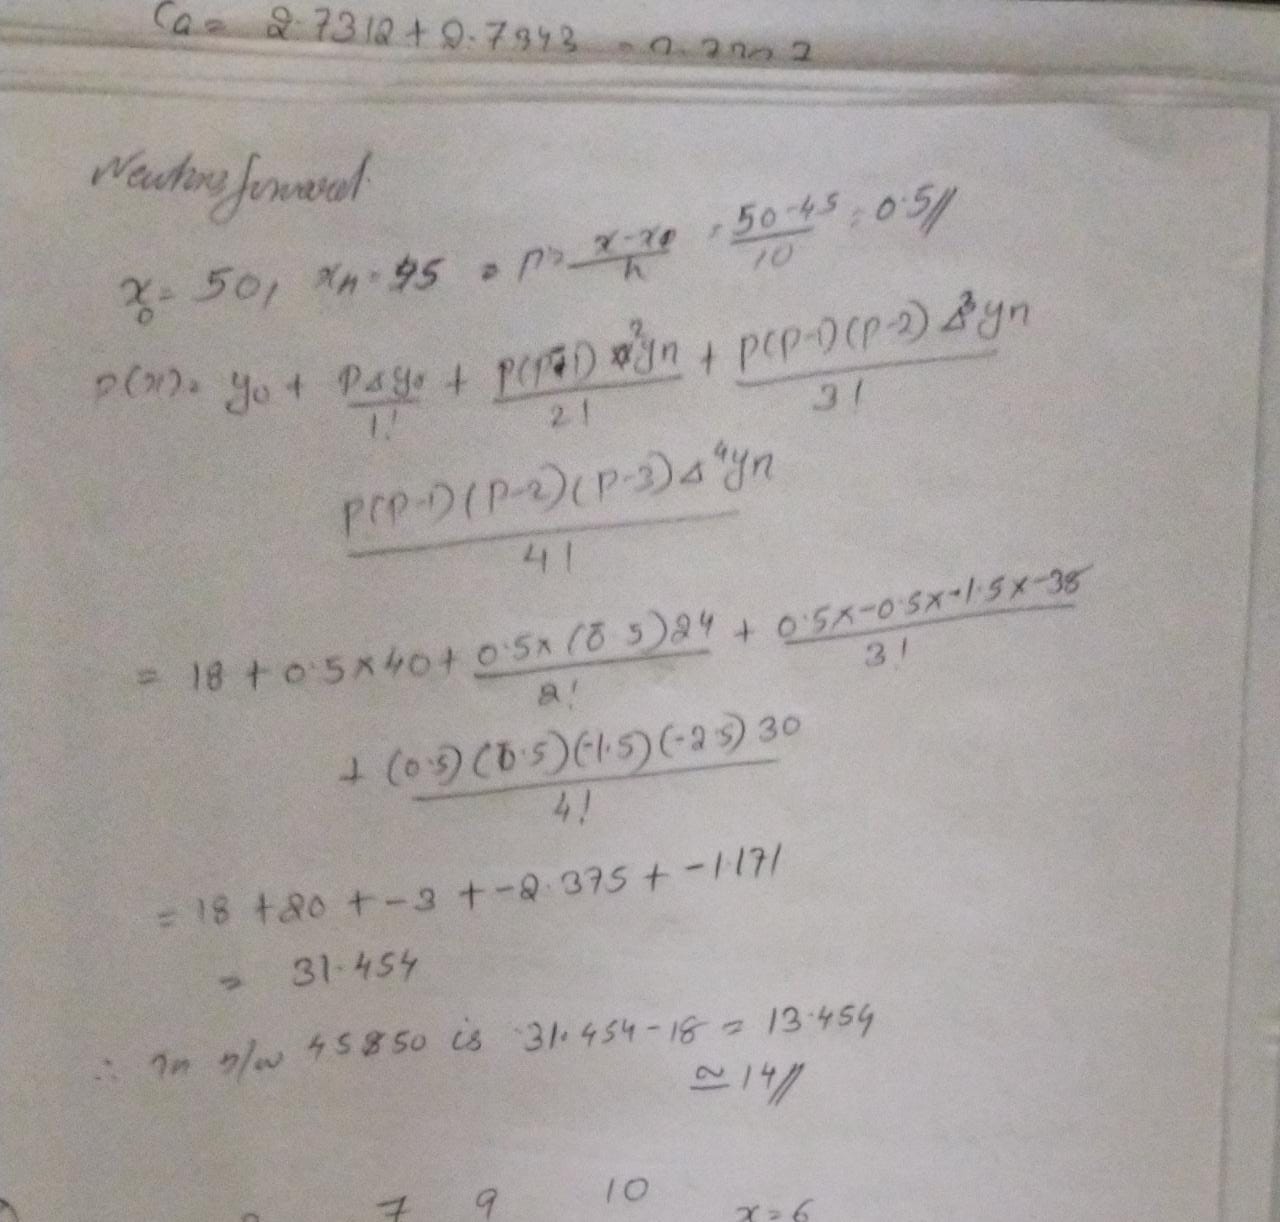 Ca = 2.7312 + 0.7943
Newtons forward.
x₀ = 50, xn = 45 = P = x-x₀/h = 50-45/10 = 0.5//
P(x) = y₀ + PΔy₀/1! + P(P-1) Δ²yn/2! + P(P-1)(P-2) Δ³yn/3!
P(P-1)(P-2)(P-3)Δ⁴yn/4!
= 18 + 0.5x40 + 0.5x(0.5)24/2! + 0.5x-0.5x-1.5x-38/3!
+ (0.5)(0.5)(-1.5)(-2.5)30/4!
= 18 + 20 + -3 + -2.375 + -1.171
= 31.454
∴ In b/w 45 & 50 is 31.454-18 = 13.454
≃ 14//
7 9 10 x=6